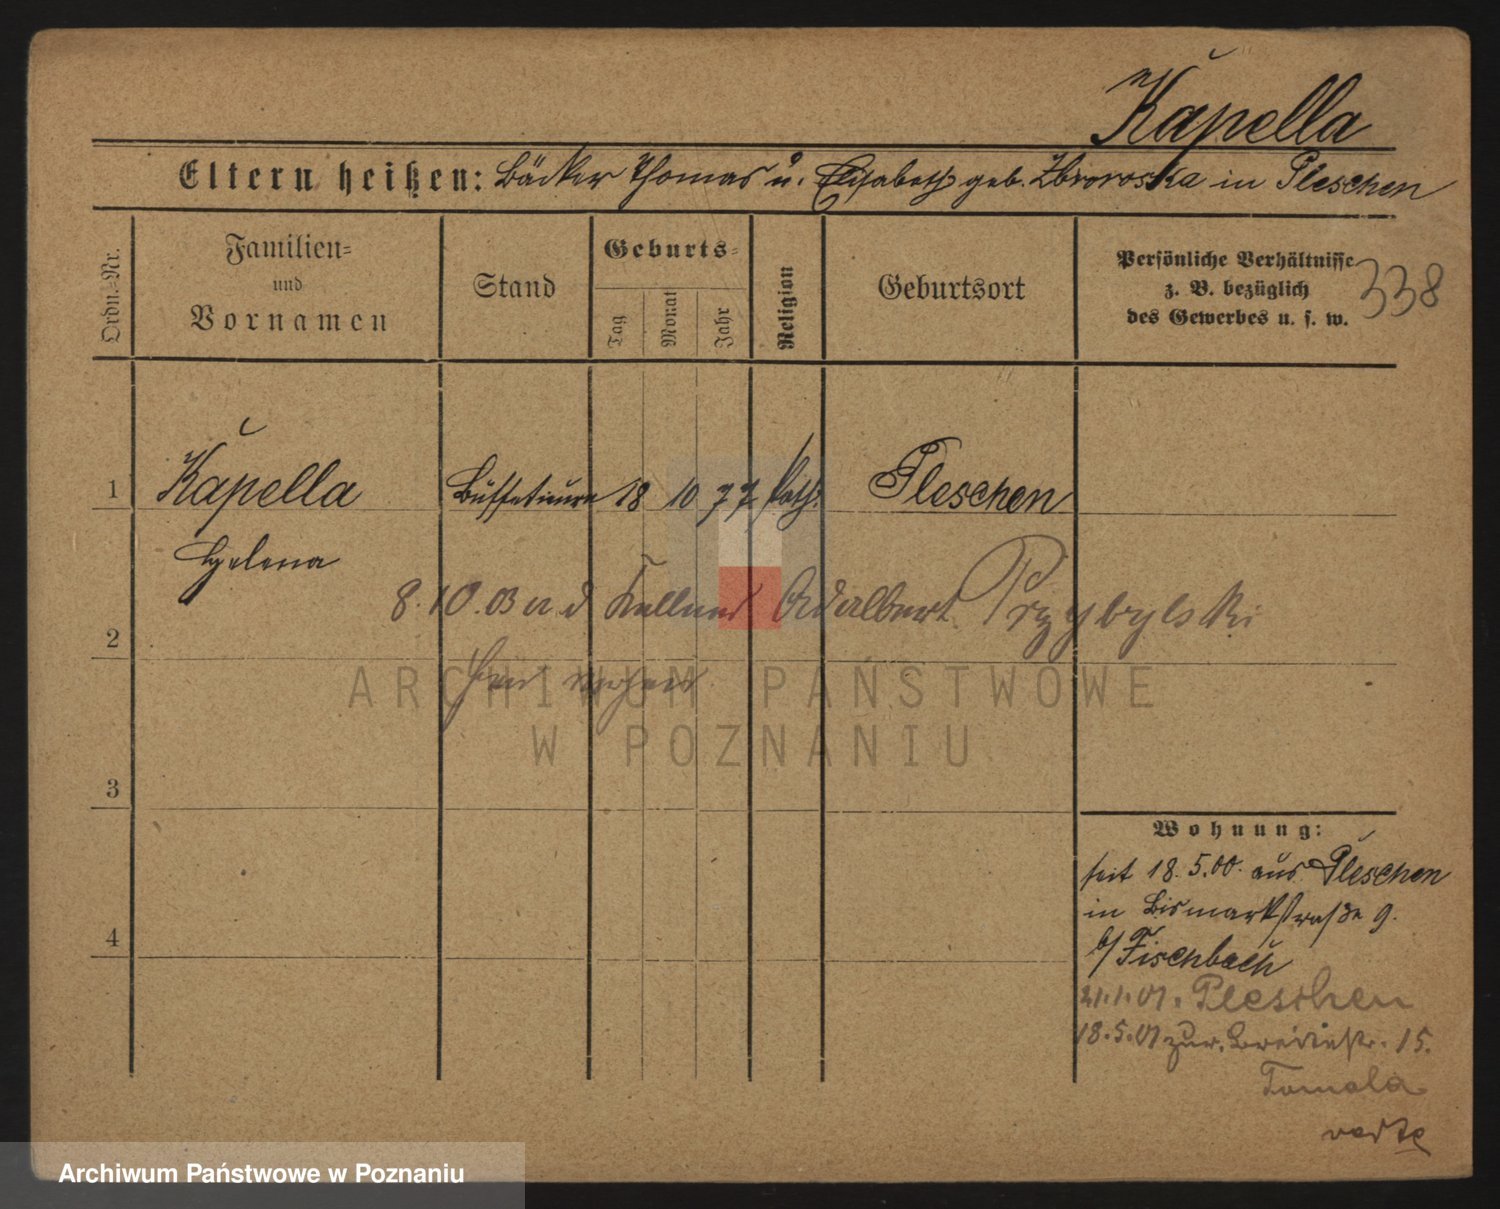 Kapella
Eltern heißen: Bäcker Thomas u. Elisabeth geb. Zbroroska in Pleschen
Ordn.-Nr.
Familien-
und
Vornamen
Stand
Geburts-
Tag
Monat
Jahr
Religion
Geburtsort
Persönliche Verhältnisse
z. B. bezüglich
des Gewerbes u. s. w.
338
1 Kapella Büffetieure 18 10 77 kath. Pleschen
Helena
8.10.03 a d Kellner Adalbert Przybylski
2
ARCHIWUM PAŃSTWOWE
W POZNANIU
3
4
Wohnung:
seit 18.5.00. aus Pleschen
in Bismarkstraße 9.
b/ Fischbach
21.1.01. Pleschen
18.5.01 zur. Breitestr. 15.
Tomala
verte
Archiwum Państwowe w Poznaniu